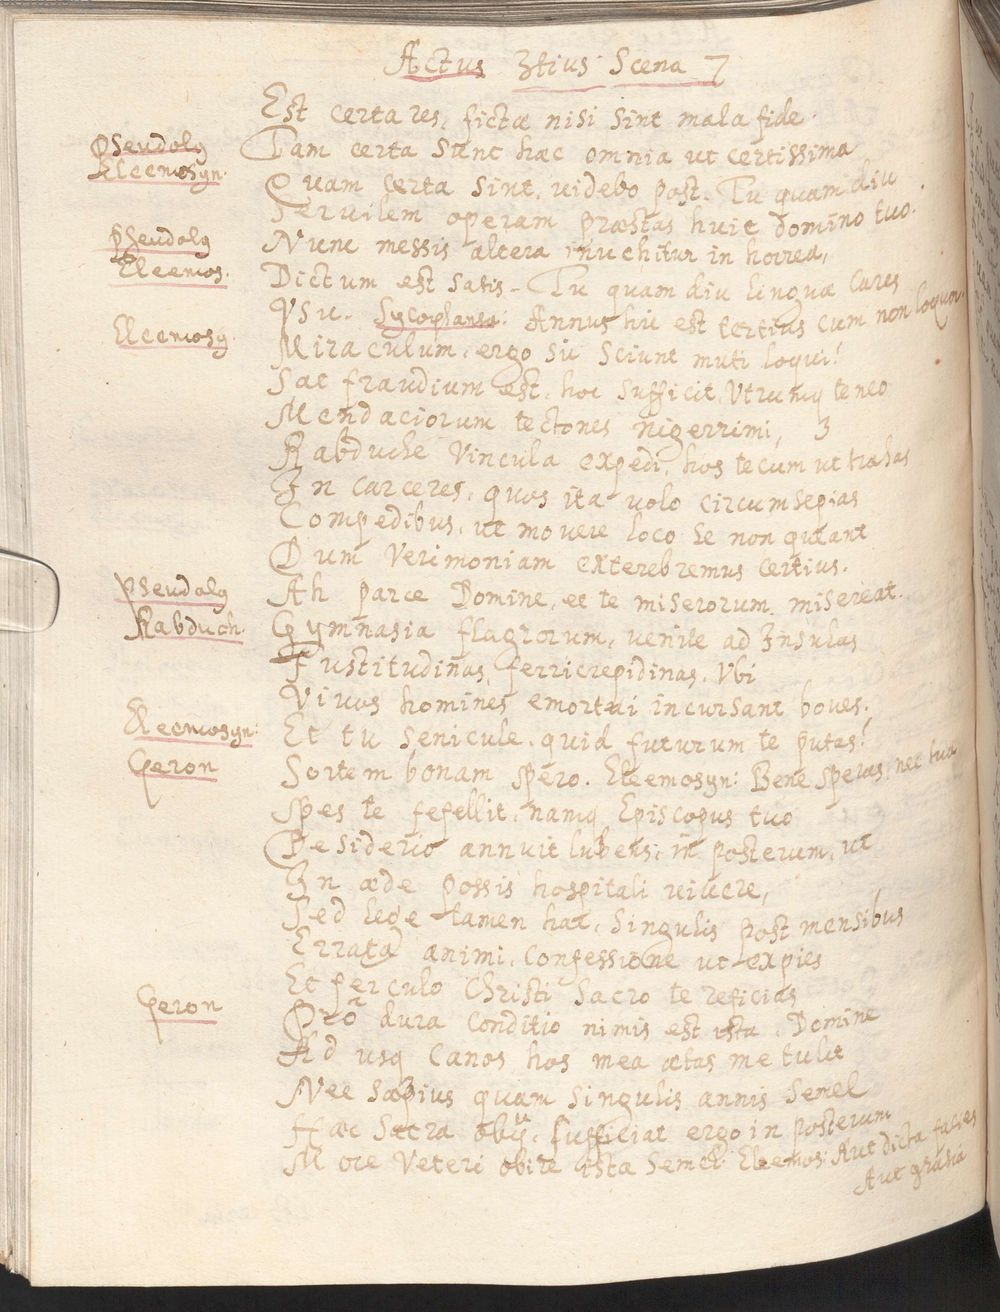 Actus 3tius Scena 7
Est certa res, fictæ nisi sint mala fide.
Pseudolg Tam certa sunt hæc omnia ut certissima
Eleemosyn. Quam certa sint, uidebo post. Tu quam diu
Seruilem operam præstas huic domino tuo.
Pseudolg Nunc messis altera inuehitur in horrea,
Eleemos. Dictum est satis. Tu quam diu linguæ cares
Vsu. Sycophanta: Annus hic est tertius cum non loquor.
Eleemosy. Miraculum, ergo sic sciunt muti loqui!
Sat fraudium est, hoc sufficit, Vtrumq teneo
Mendaciorum tectones nigerrimi, 3
Rabduche Vincula expedi, hos tecum ut trahas
In carceres, quos ita uolo circumsepias
Compedibus, ut mouere loco se non queant
Dum Verimoniam exterebremus certius.
Pseudolg Ah parce Domine, et te miserorum misereat.
Rabduch. Gymnasia flagrorum, uenite ad Insulas
Fustitudinas, ferricrepidinas, Vbi
Viuos homines emortui incursant boues.
Eleemosyn: Et tu senicule, quid futurum te putas!
Geron Sortem bonam spero. Eleemosyn: Bene speras, nec tua
Spes te fefellit, namq Episcopus tuo
Desiderio annuit lubens, in posterum, ut
In æde possis hospitali uiuere,
Sed lege tamen hac, singulis post mensibus
Errata animi, Confessione ut expies
Et ferculo Christi sacro te reficias
Geron Prô dura conditio nimis est ista, Domine
Ad usq Canos hos mea ætas me tulit
Nec sæpius quam singulis annis semel
Hæc sacra obij, sufficiat ergo in posterum
More Veteri obire ista semel. Eleemos: Aut dicta facies
Aut gratia